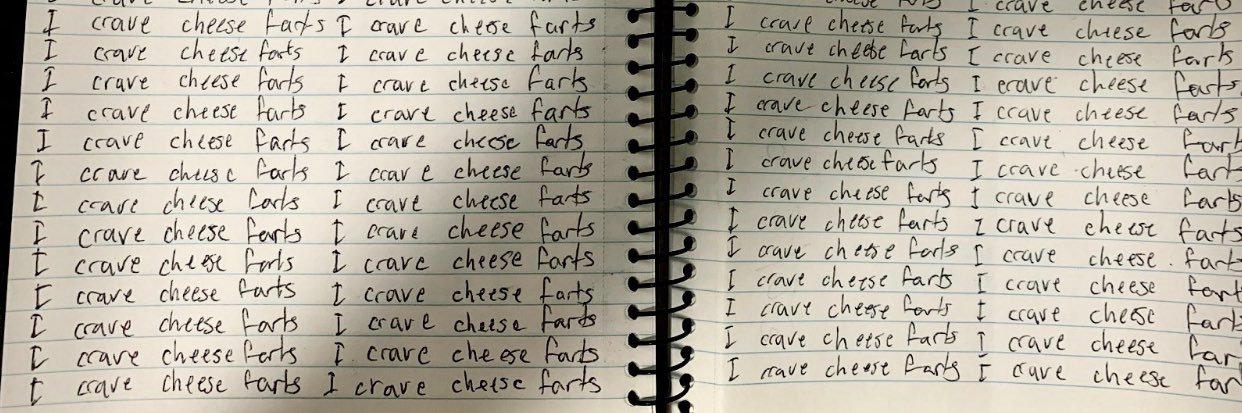 I crave cheese farts I crave cheese farts
I crave cheese farts I crave cheese farts
I crave cheese farts I crave cheese farts
I crave cheese farts I crave cheese farts
I crave cheese farts I crave cheese farts
I crave cheese farts I crave cheese farts
I crave cheese farts I crave cheese farts
I crave cheese farts I crave cheese farts
I crave cheese farts I crave cheese farts
I crave cheese farts I crave cheese farts
I crave cheese farts I crave cheese farts
I crave cheese farts I crave cheese farts
I crave cheese farts I crave cheese farts
I crave cheese fart
I crave cheese farts I crave cheese farts
I crave cheese farts I crave cheese farts
I crave cheese farts I crave cheese farts
I crave cheese farts I crave cheese farts
I crave cheese farts I crave cheese fart
I crave cheese farts I crave cheese fart
I crave cheese farts I crave cheese farts
I crave cheese farts I crave cheese farts
I crave cheese farts I crave cheese fart
I crave cheese farts I crave cheese fart
I crave cheese farts I crave cheese fart
I crave cheese farts I crave cheese far
I crave cheese farts I crave cheese far